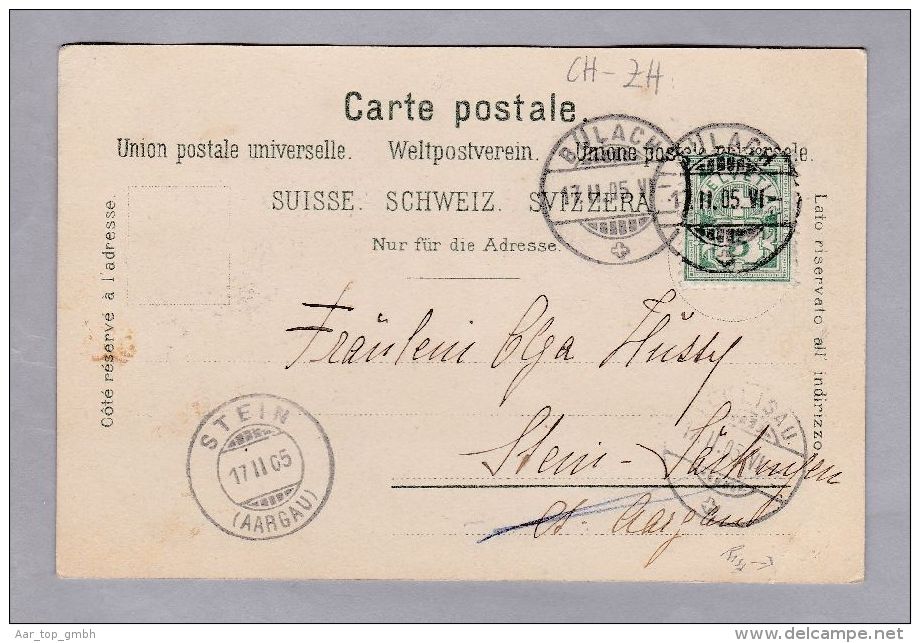 CH-ZH.
Carte postale.
Union postale universelle. Weltpostverein. Unione postale
SUISSE. SCHWEIZ. SVIZZERA
Nur für die Adresse.
Côté réservé à l'adresse.
Lato riservato all' indirizzo.
BÜLACH
17.II.05.VI
BÜLACH
II.05.VI
HELVETIA
5
Fräulein Olga Hüssy
Stein-Säckingen
Ct. Aargau
STEIN
17 II 05
(AARGAU)
Aar_top_gmbh
www.delcampe.net